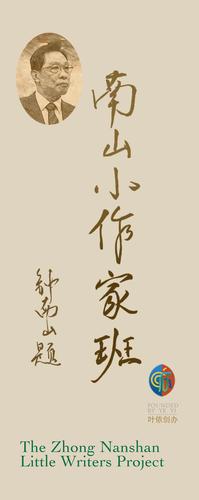 南山小作家班
钟南山题
FOUNDED
BY YE YI
叶依创办
The Zhong Nanshan
Little Writers Project